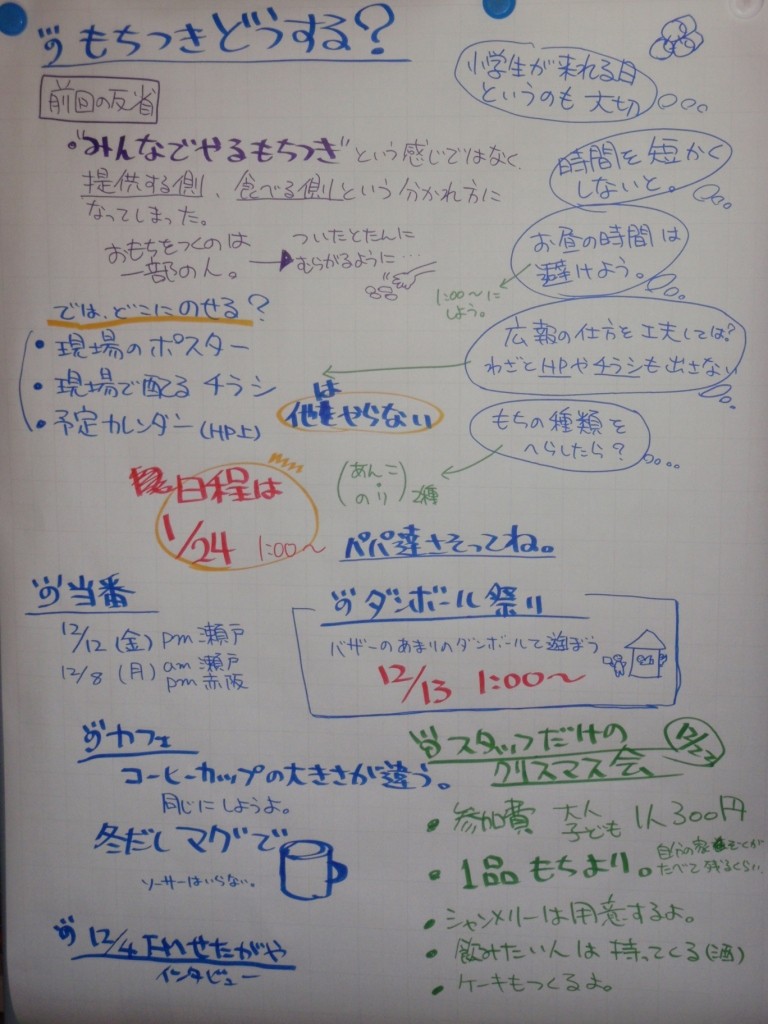 もちつきどうする？
前回の反省
小学生が来れる日
というのも 大切
・"みんなでやるもちつき"という感じではなく、
提供する側、食べる側という分かれ方に
なってしまった。
おもちをつくのは
一部の人。
ついたとたんに
むらがるように…
時間を短かく
しないと。
お昼の時間は
避けよう。
1:00〜に
しよう。
では、どこにのせる？
・現場のポスター
・現場で配るチラシ
・予定カレンダー(HP上)
広報の仕方を工夫しては？
わざとHPやチラシも出さない
は
他はやらない
もちの種類を
へらしたら？
(あんこ・のり) 2種
日程は
1/24 1:00〜
パパ達さそってね。
当番
12/12 (金) pm 瀬戸
12/8 (月) am 瀬戸
pm 赤阪
ダンボール祭り
バザーのあまりのダンボールで遊ぼう
12/13 1:00〜
カフェ
コーヒーカップの大きさが違う。
同じにしようよ。
冬だしマグで
ソーサーはいらない。
12/4
せたがや
インタビュー
スタッフだけの
クリスマス会
12/23
・参加費 大人 子ども 1人300円
・1品もちより。
自分の家ぞくが
たべて残るくらい。
・シャンメリーは用意するよ。
・飲みたい人は持ってくる(酒)
・ケーキもつくるよ。